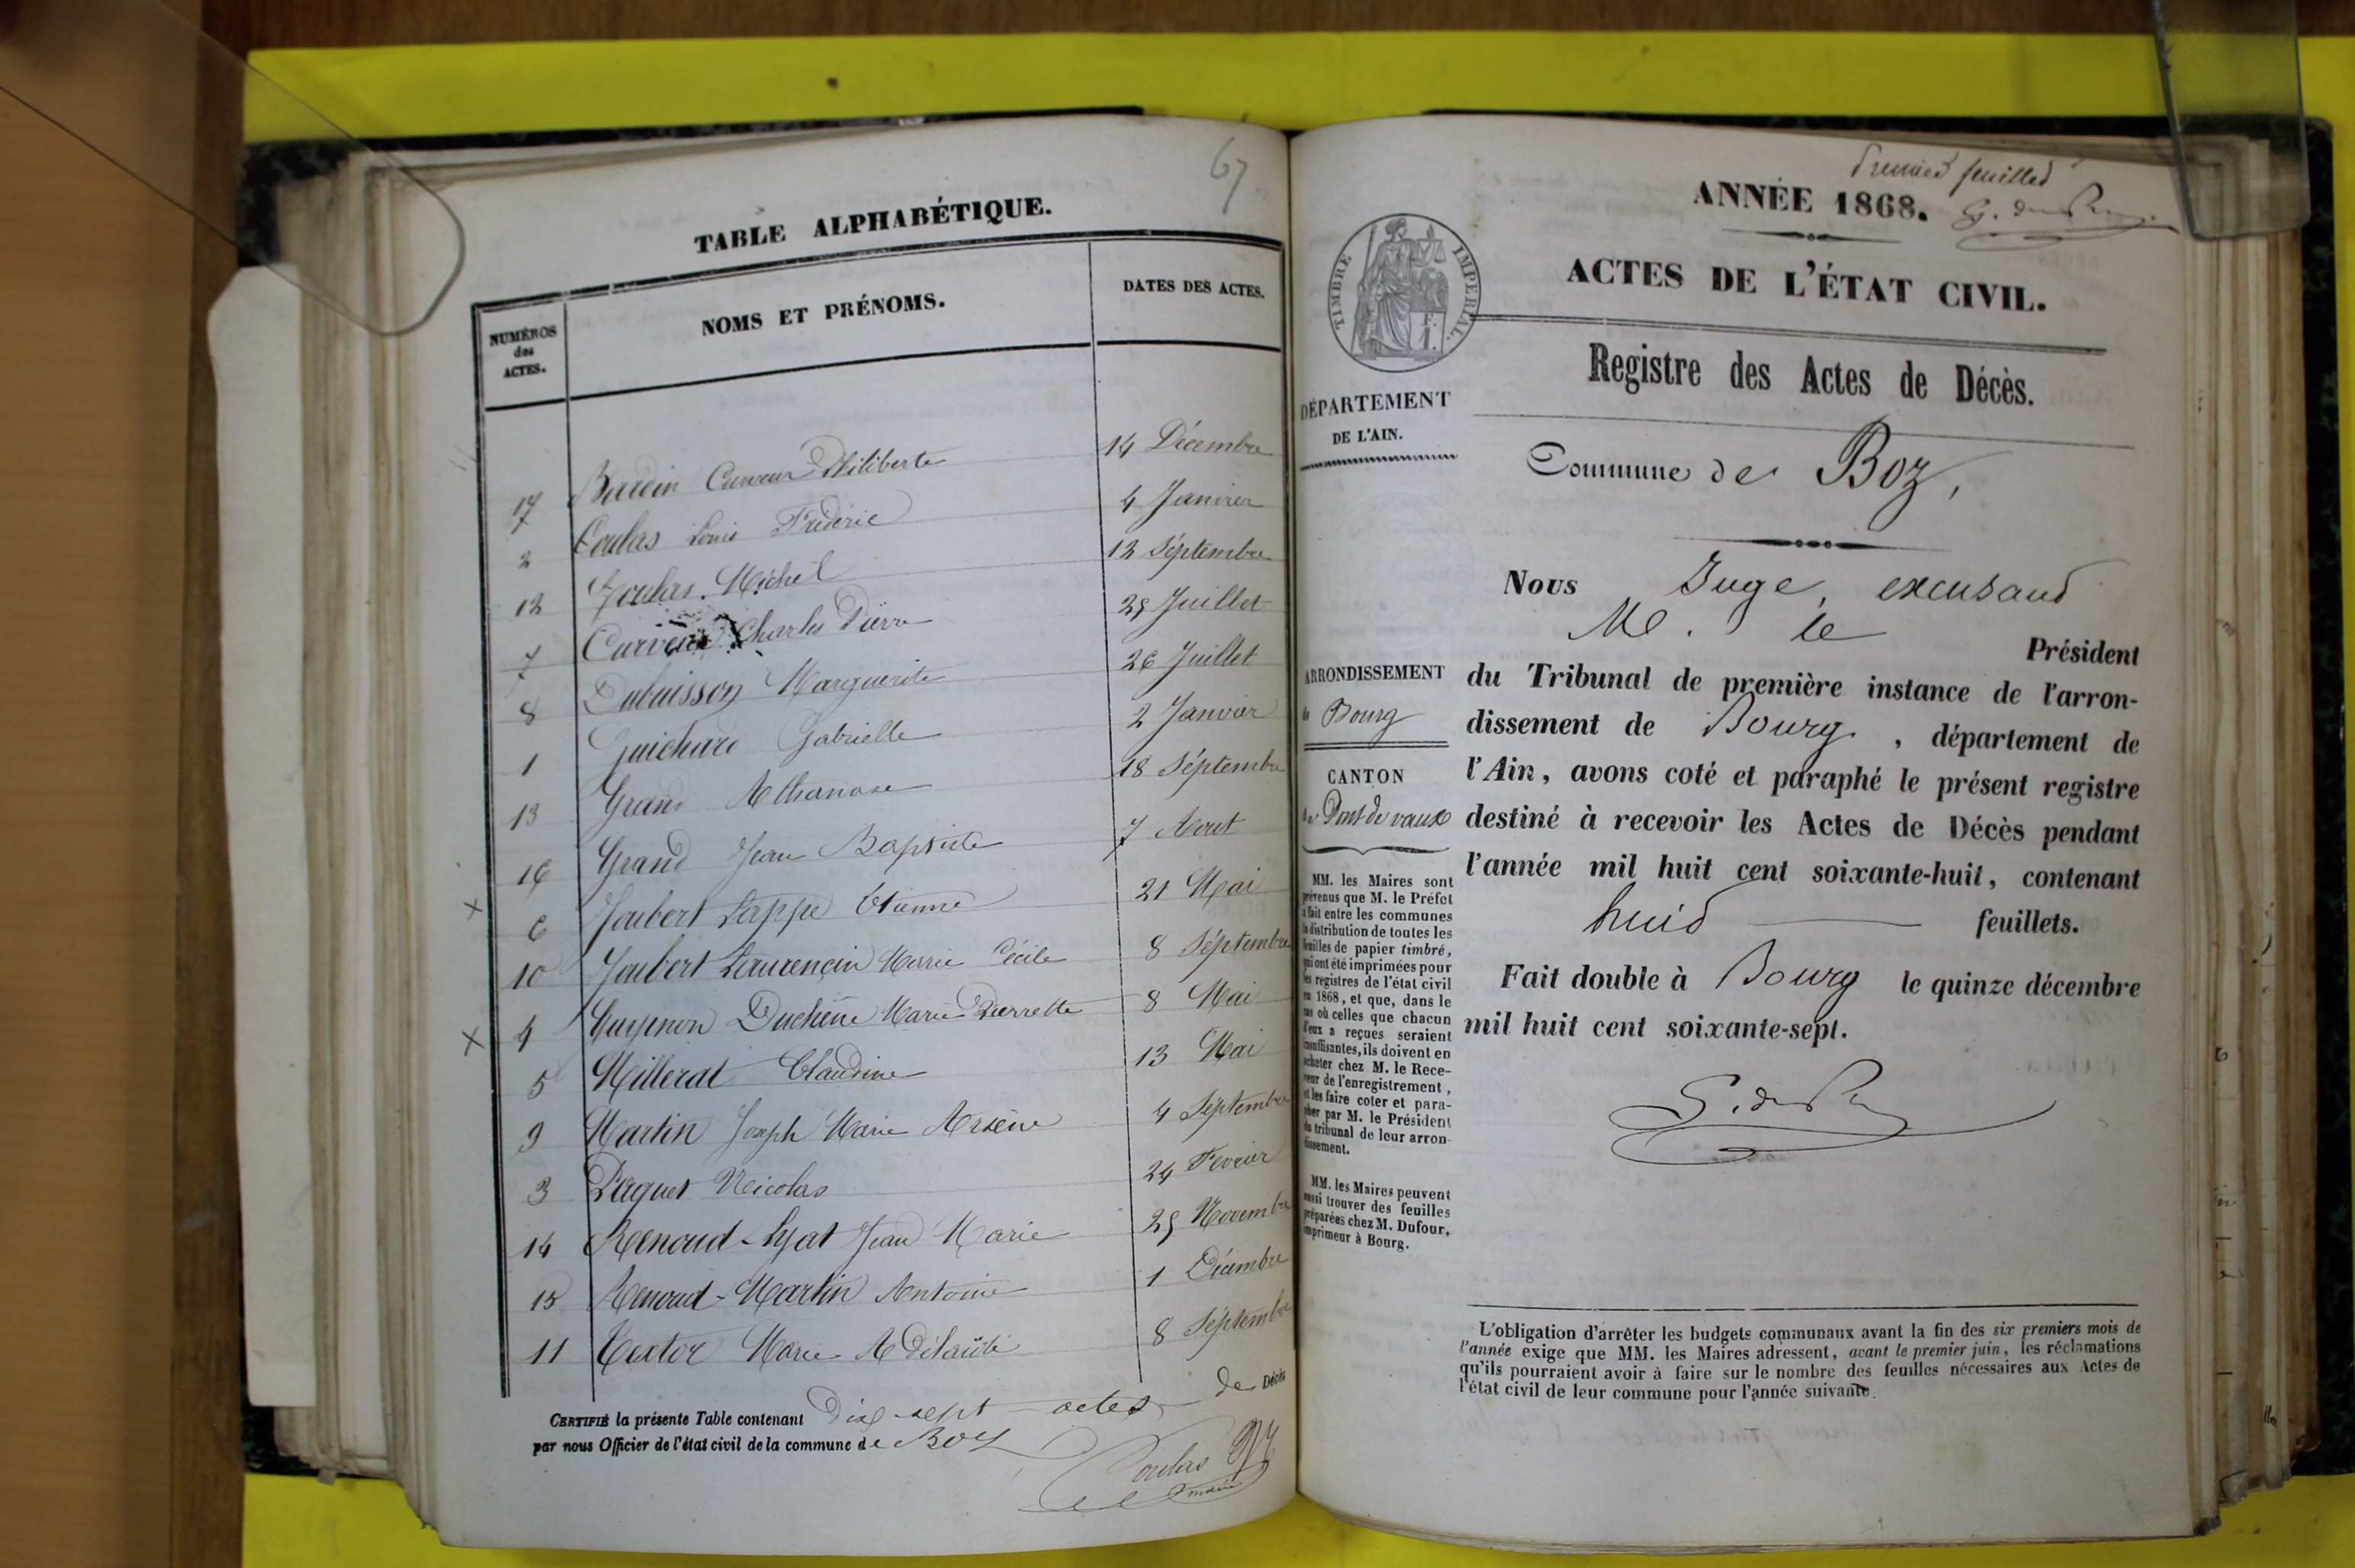 67
TABLE ALPHABÉTIQUE.
NUMÉROS
des
ACTES.
NOMS ET PRÉNOMS.
DATES DES ACTES.
17 Bardin Philiberte 14 Décembre
2 Coulas Louis Fréderic 4 Janvier
12 Coulas Michel 12 Séptembre
7 Charles Pierre 25 Juillet
8 Dubuisson Marguerite 26 Juillet
1 Guichard Gabrielle 2 Janvier
13 Grand Athanase 18 Séptembre
16 Grand Jean Baptiste 7 Aout
6 Joubert Lappe Etienne 21 Mai
10 Joubert Laurençin Marie Cécile 8 Séptembre
4 Guyenon Duchêne Marie Pierrette 8 Mai
5 Millerat Claudine 13 Mai
9 Martin Joseph Marie Arsène 4 Séptembre
3 Paquet Nicolas 24 Février
14 Renaud-Lyat Jean Marie 25 Novembre
15 Renaud-Martin Antoine 1 Décembre
11 Textor Marie Adélaïde 8 Séptembre
CERTIFIÉ la présente Table contenant Dix sept actes de Décès
par nous Officier de l'état civil de la commune de Boz
Coulas
maire
Premier feuillet
ANNÉE 1868.
ACTES DE L'ÉTAT CIVIL.
TIMBRE IMPERIAL.
Registre des Actes de Décès.
DÉPARTEMENT
DE L'AIN.
Commune de Boz,
Nous Juge, excusand
M. le
Président
du Tribunal de première instance de l'arron-
dissement de Bourg, département de
l'Ain, avons coté et paraphé le présent registre
destiné à recevoir les Actes de Décès pendant
l'année mil huit cent soixante-huit, contenant
huid feuillets.
Fait double à Bourg le quinze décembre
mil huit cent soixante-sept.
ARRONDISSEMENT
de Bourg
CANTON
de Pont de vaux
MM. les Maires sont
prévenus que M. le Préfet
a fait entre les communes
la distribution de toutes les
feuilles de papier timbré,
qui ont été imprimées pour
les registres de l'état civil
en 1868, et que, dans le
cas où celles que chacun
d'eux a reçues seraient
insuffisantes, ils doivent en
acheter chez M. le Rece-
veur de l'enregistrement,
et les faire coter et para-
pher par M. le Président
du tribunal de leur arron-
dissement.
MM. les Maires peuvent
aussi trouver des feuilles
préparées chez M. Dufour,
imprimeur à Bourg.
L'obligation d'arrêter les budgets communaux avant la fin des six premiers mois de
l'année exige que MM. les Maires adressent, avant le premier juin, les réclamations
qu'ils pourraient avoir à faire sur le nombre des feuilles nécessaires aux Actes de
l'état civil de leur commune pour l'année suivante.